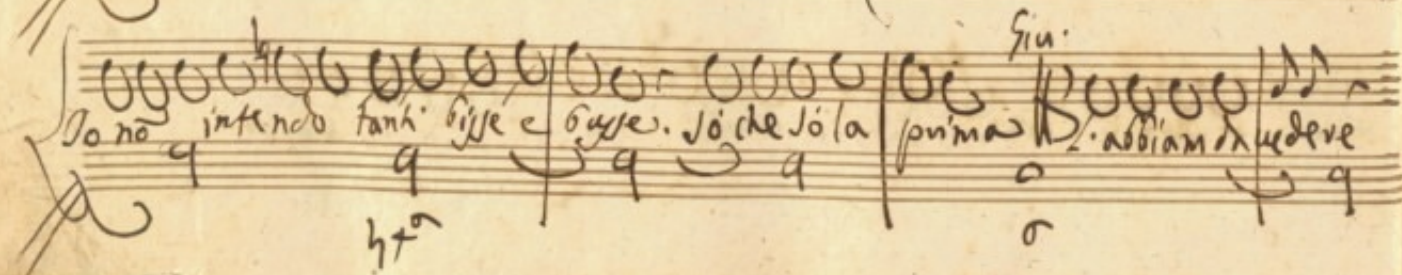 Giu.
Io nō intendo tanti bisse e busse. sò che sò la prima L'abbiam da vedere
6